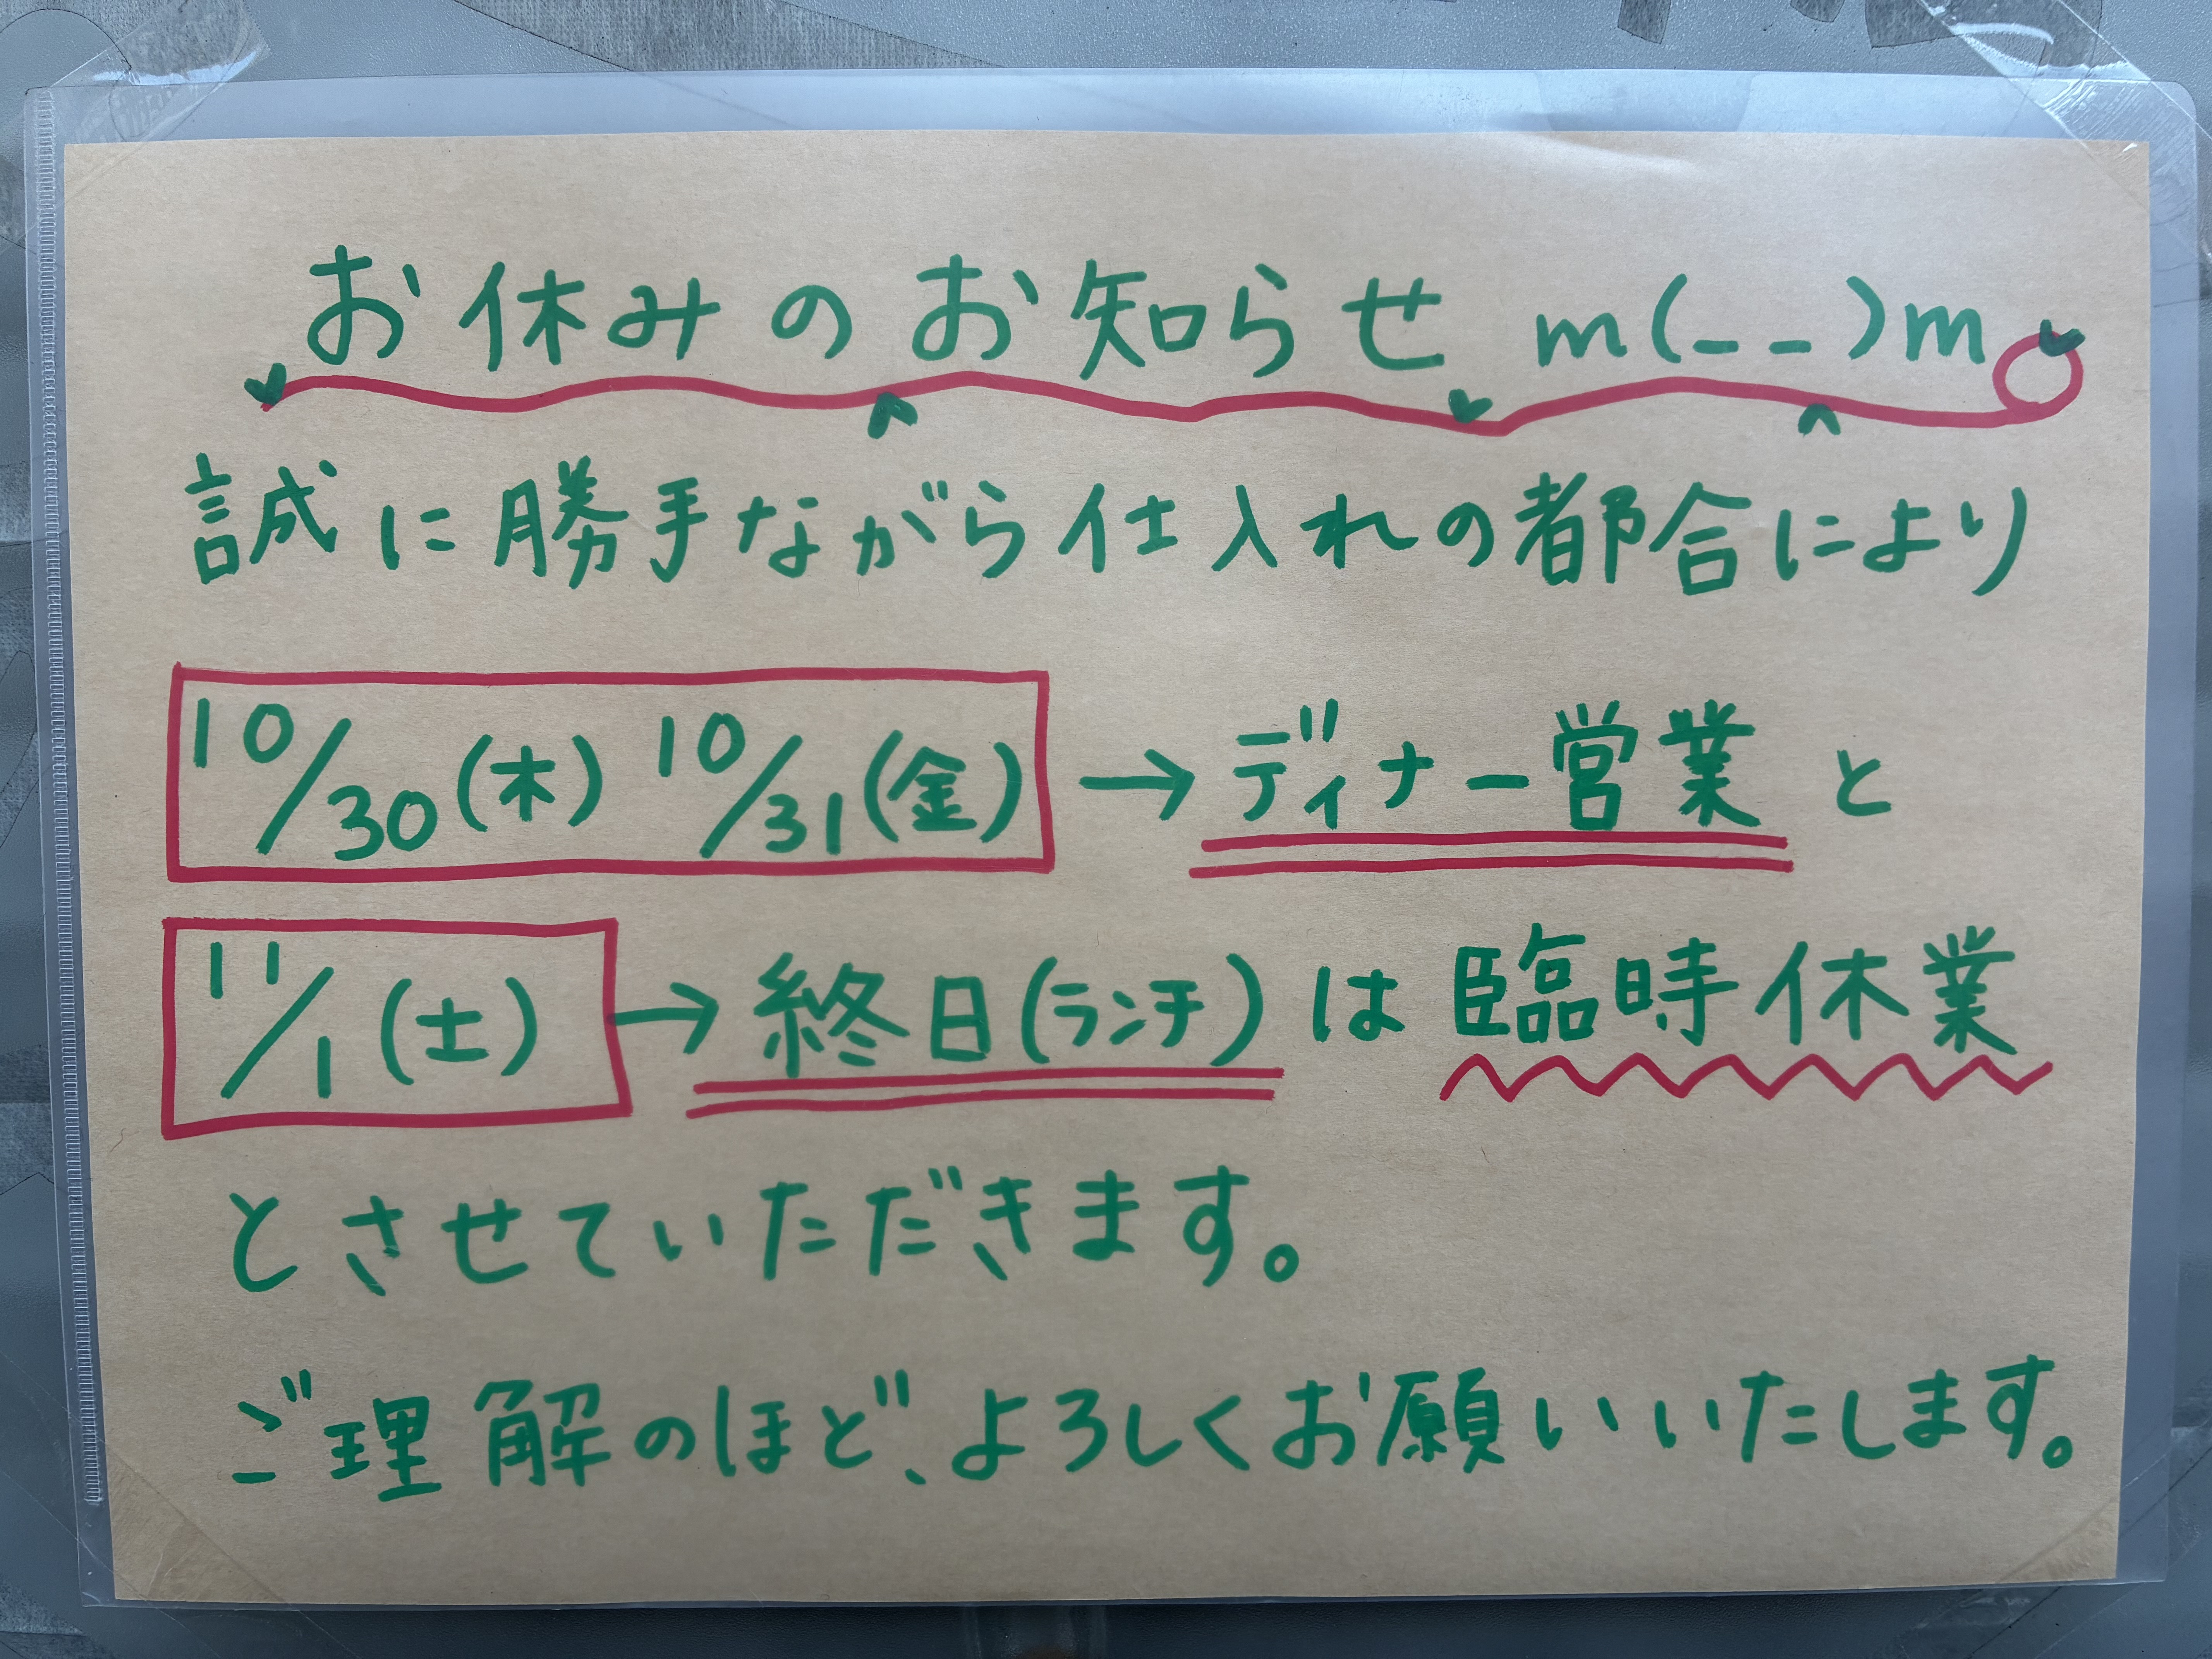 お休みのお知らせ m(_ _)m
誠に勝手ながら仕入れの都合により
10/30(木) 10/31(金)→ディナー営業と
11/1(土)→終日(ランチ)は臨時休業
とさせていただきます。
ご理解のほど、よろしくお願いいたします。